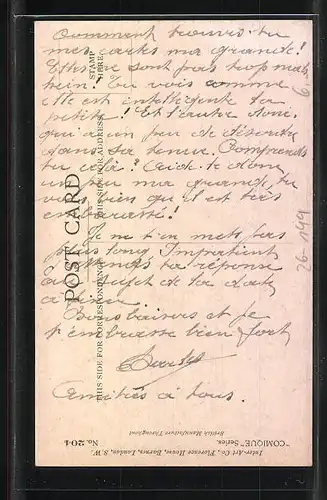 Comment trouves-tu
mes cartes ma grande!
Elles ne sont pas trop mal
hein! Tu vois comme
elle est intelligente la
petite! Et l'autre donc,
qui a un peu de désordre
dans sa tenue. Comprends
tu cela? Aide-le donc
un peu ma grande, tu
vois bien qu'il est très
embarrassé!
Je ne t'en mets pas
plus long. Impatient
j'attends ta réponse
au sujet de la date
Bons baisers et je
t'embrasse bien fort
Amitiés à tous.
26-1499
POST CARD
THIS SIDE FOR CORRESPONDENCE
THIS SIDE FOR ADDRESS
STAMP
HERE
"COMIQUE" Series.
No. 204
Inter-Art Co., Florence House, Barnes, London, S.W.
British Manufacture Throughout